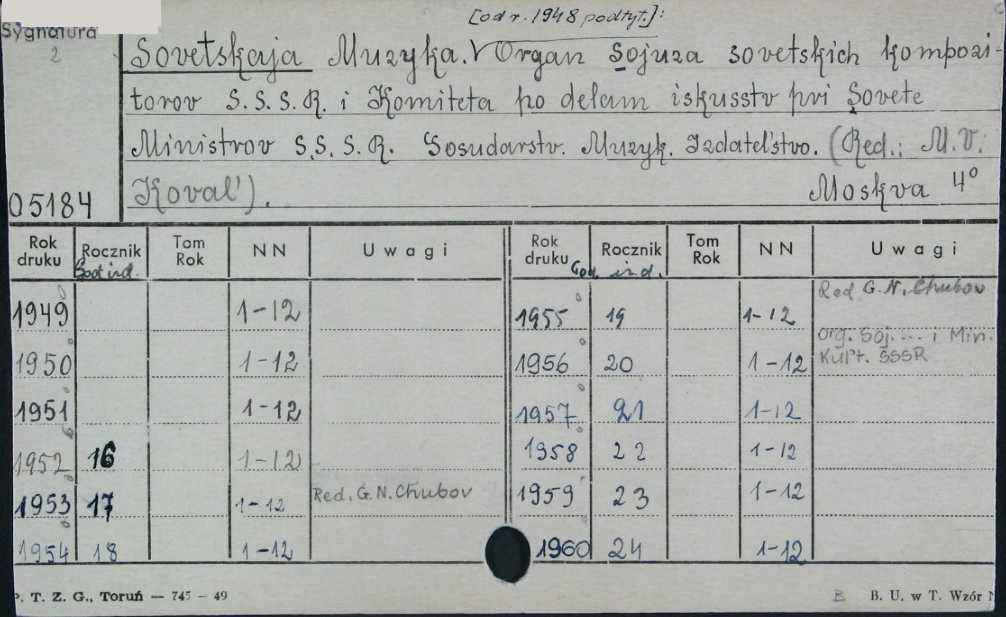 [od r. 1948 podtyt.]:
Sygnatura
2
Sovetskaja Muzyka. Organ Sojuza sovetskich kompozi-
torov S.S.S.R. i Komiteta po delam iskusstv pri Sovete
Ministrov S.S.S.R. Gosudarstv. Muzyk. Izdatel'stvo. (Red.: M.V.
Koval').
Moskva 4°
05184
Rok druku Rocznik Tom Rok NN Uwagi Rok druku Rocznik Tom Rok NN Uwagi
God izd. God izd.
1949 1-12 1955 19 1-12 Red G.N. Chubov
1950 1-12 1956 20 1-12 Org. Soj. ... i Min. Kul't. SSSR
1951 1-12 1957 21 1-12
1952 16 1-12 1958 22 1-12
1953 17 1-12 Red. G.N. Chubov 1959 23 1-12
1954 18 1-12 1960 24 1-12
P. T. Z. G., Toruń — 745 - 49 B B. U. w T. Wzór